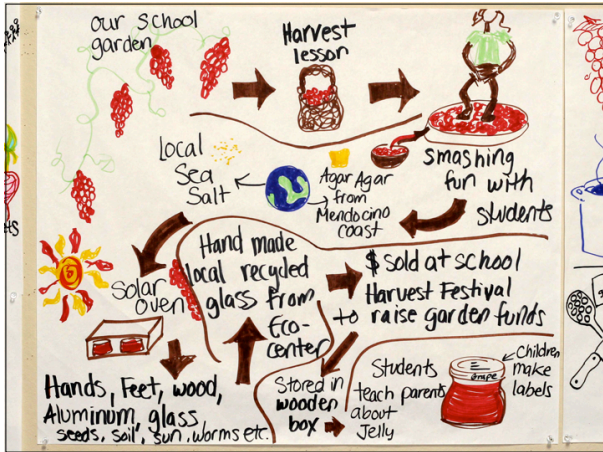 our school
garden
Harvest
lesson
Local
Sea
Salt
Agar Agar
from
Mendocino
coast
smashing
fun with
students
Solar
oven
Hand made
local recycled
glass from
Eco-
center
$ sold at school
Harvest Festival
to raise garden funds
Hands, Feet, wood,
Aluminum, glass
seeds, soil, sun, worms etc.
Stored in
wooden
box
Students
teach parents
about
Jelly
grape
Children
make
labels